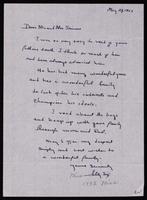 May 29, 1963
Dear Mr and Mrs Simons
I was so very sorry to read of your
father's death. I think so much of him
and have always admired him.
He has had many wonderful years
and has a wonderful family
to look after his interests and
champion his ideals.
I read about the boys
and keep up with your family
through mamma and Dad.
May I offer my deepest
sympathy and best wishes to
a wonderful family.
Yours sincerely